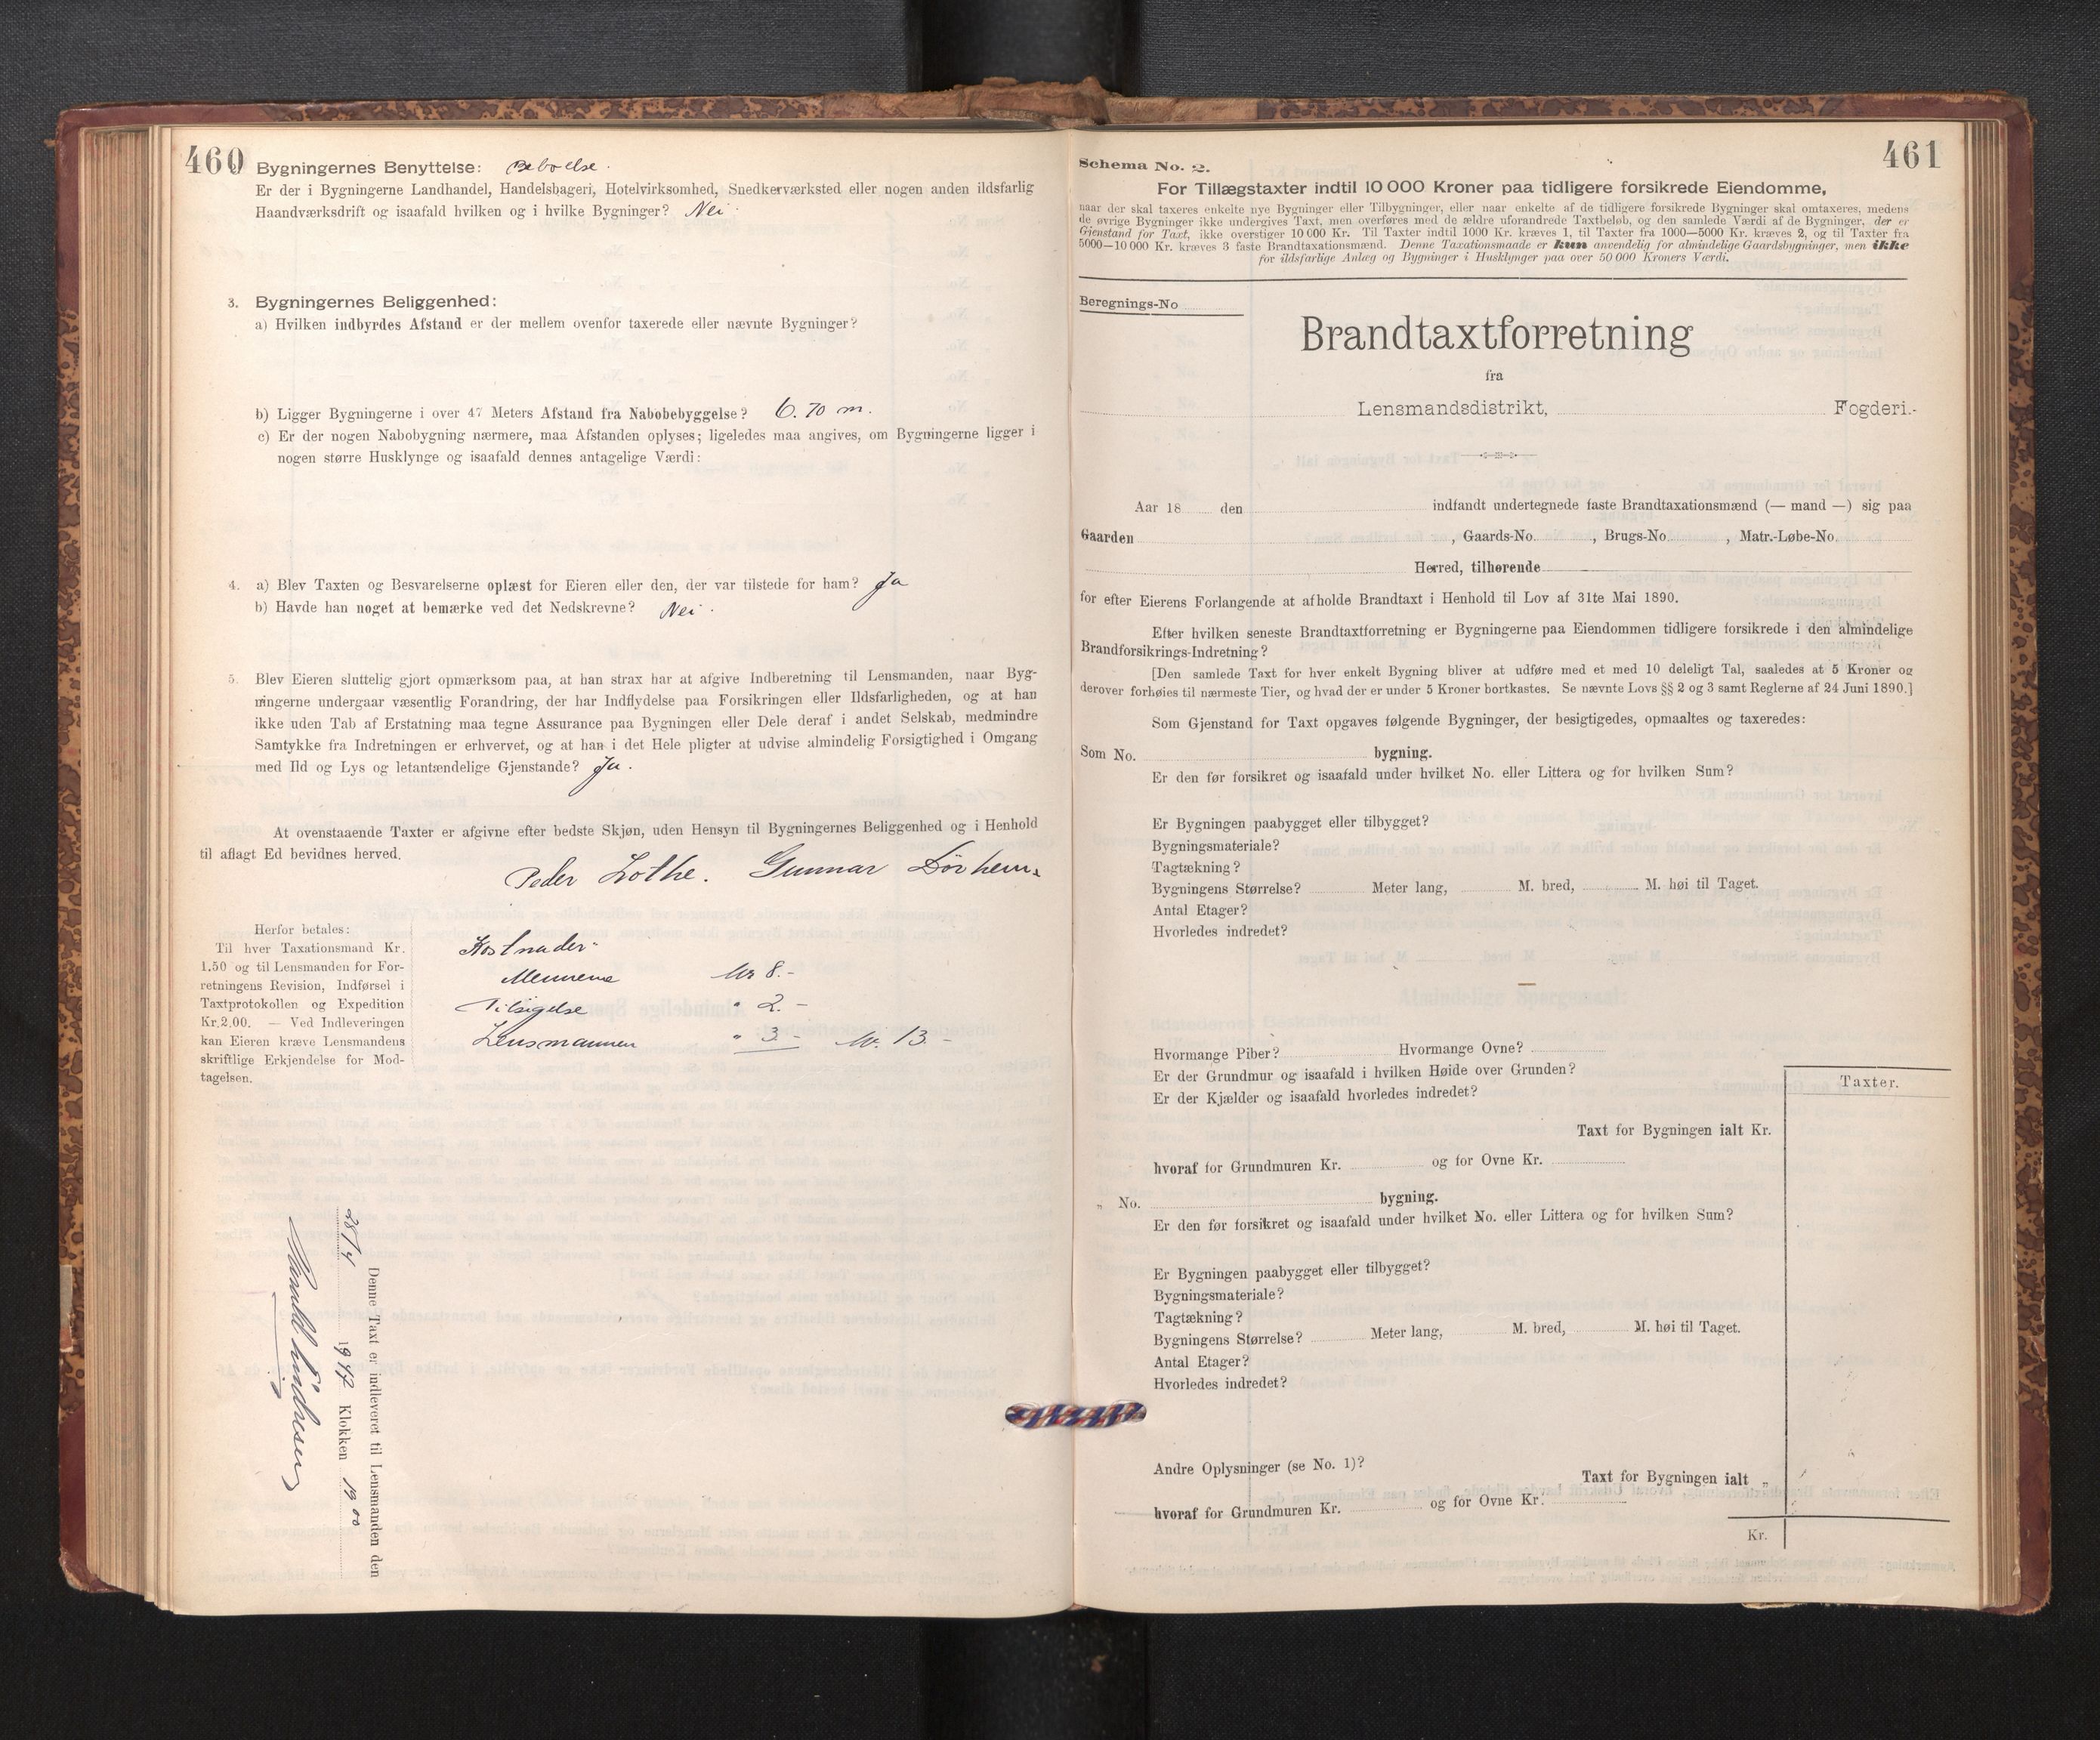 460
Bygningernes Benyttelse: Beboelse.
Er der i Bygningerne Landhandel, Handelsbageri, Hotelvirksomhed, Snedkerværksted eller nogen anden ildsfarlig
Haandværksdrift og isaafald hvilken og i hvilke Bygninger? Nei.
3. Bygningernes Beliggenhed:
a) Hvilken indbyrdes Afstand er der mellem ovenfor taxerede eller nævnte Bygninger?
b) Ligger Bygningerne i over 47 Meters Afstand fra Nabobebyggelse? 6.70 m.
c) Er der nogen Nabobygning nærmere, maa Afstanden oplyses; ligeledes maa angives, om Bygningerne ligger i
nogen større Husklynge og isaafald dennes antagelige Værdi:
4. a) Blev Taxten og Besvarelserne oplæst for Eieren eller den, der var tilstede for ham? Ja
b) Havde han noget at bemærke ved det Nedskrevne? Nei.
5. Blev Eieren sluttelig gjort opmærksom paa, at han strax har at afgive Indberetning til Lensmanden, naar Byg-
ningerne undergaar væsentlig Forandring, der har Indflydelse paa Forsikringen eller Ildsfarligheden, og at han
ikke uden Tab af Erstatning maa tegne Assurance paa Bygningen eller Dele deraf i andet Selskab, medmindre
Samtykke fra Indretningen er erhvervet, og at han i det Hele pligter at udvise almindelig Forsigtighed i Omgang
med Ild og Lys og letantændelige Gjenstande? Ja.
At ovenstaaende Taxter er afgivne efter bedste Skjøn, uden Hensyn til Bygningernes Beliggenhed og i Henhold
til aflagt Ed bevidnes herved.
Peder Lothe. Gunnar Dørheim
Herfor betales:
Til hver Taxationsmand Kr.
1.50 og til Lensmanden for For-
retningens Revision, Indførsel i
Taxtprotokollen og Expedition
Kr. 2.00. — Ved Indleveringen
kan Eieren kræve Lensmandens
skriftlige Erkjendelse for Mod-
tagelsen.
Kostnader
Mennene Kr 8.-
Tilsigelse " 2.-
Lensmannen " 3.- kr. 13.-
Denne Taxt er indleveret til Lensmanden den
28/4 1942 Klokken 19 00
461
Schema No. 2.
For Tillægstaxter indtil 10 000 Kroner paa tidligere forsikrede Eiendomme,
naar der skal taxeres enkelte nye Bygninger eller Tilbygninger, eller naar enkelte af de tidligere forsikrede Bygninger skal omtaxeres, medens
de øvrige Bygninger ikke undergives Taxt, men overføres med de ældre uforandrede Taxtbeløb, og den samlede Værdi af de Bygninger, der er
Gjenstand for Taxt, ikke overstiger 10 000 Kr. Til Taxter indtil 1000 Kr. kræves 1, til Taxter fra 1000—5000 Kr. kræves 2, og til Taxter fra
5000—10 000 Kr. kræves 3 faste Brandtaxationsmænd. Denne Taxationsmaade er kun anvendelig for almindelige Gaardsbygninger, men ikke
for ildsfarlige Anlæg og Bygninger i Husklynger paa over 50 000 Kroners Værdi.
Beregnings-No
Brandtaxtforretning
fra
Lensmandsdistrikt, Fogderi.
Aar 18 den indfandt undertegnede faste Brandtaxationsmænd (— mand —) sig paa
Gaarden , Gaards-No. , Brugs-No. , Matr.-Løbe-No.
Herred, tilhørende
for efter Eierens Forlangende at afholde Brandtaxt i Henhold til Lov af 31te Mai 1890.
Efter hvilken seneste Brandtaxtforretning er Bygningerne paa Eiendommen tidligere forsikrede i den almindelige
Brandforsikrings-Indretning?
[Den samlede Taxt for hver enkelt Bygning bliver at udføre med et med 10 deleligt Tal, saaledes at 5 Kroner og
derover forhøies til nærmeste Tier, og hvad der er under 5 Kroner bortkastes. Se nævnte Lovs §§ 2 og 3 samt Reglerne af 24 Juni 1890.]
Som Gjenstand for Taxt opgaves følgende Bygninger, der besigtigedes, opmaaltes og taxeredes:
Som No. bygning.
Er den før forsikret og isaafald under hvilket No. eller Littera og for hvilken Sum?
Er Bygningen paabygget eller tilbygget?
Bygningsmateriale?
Tagtækning?
Bygningens Størrelse? Meter lang, M. bred, M. høi til Taget.
Antal Etager?
Hvorledes indredet?
Hvormange Piber? Hvormange Ovne?
Er der Grundmur og isaafald i hvilken Høide over Grunden?
Er der Kjælder og isaafald hvorledes indredet?
Taxter.
Taxt for Bygningen ialt Kr.
hvoraf for Grundmuren Kr. og for Ovne Kr.
„ No. bygning.
Er den før forsikret og isaafald under hvilket No. eller Littera og for hvilken Sum?
Er Bygningen paabygget eller tilbygget?
Bygningsmateriale?
Tagtækning?
Bygningens Størrelse? Meter lang, M. bred, M. høi til Taget.
Antal Etager?
Hvorledes indredet?
Andre Oplysninger (se No. 1)?
Taxt for Bygningen ialt „
hvoraf for Grundmuren Kr. og for Ovne Kr.
Kr.